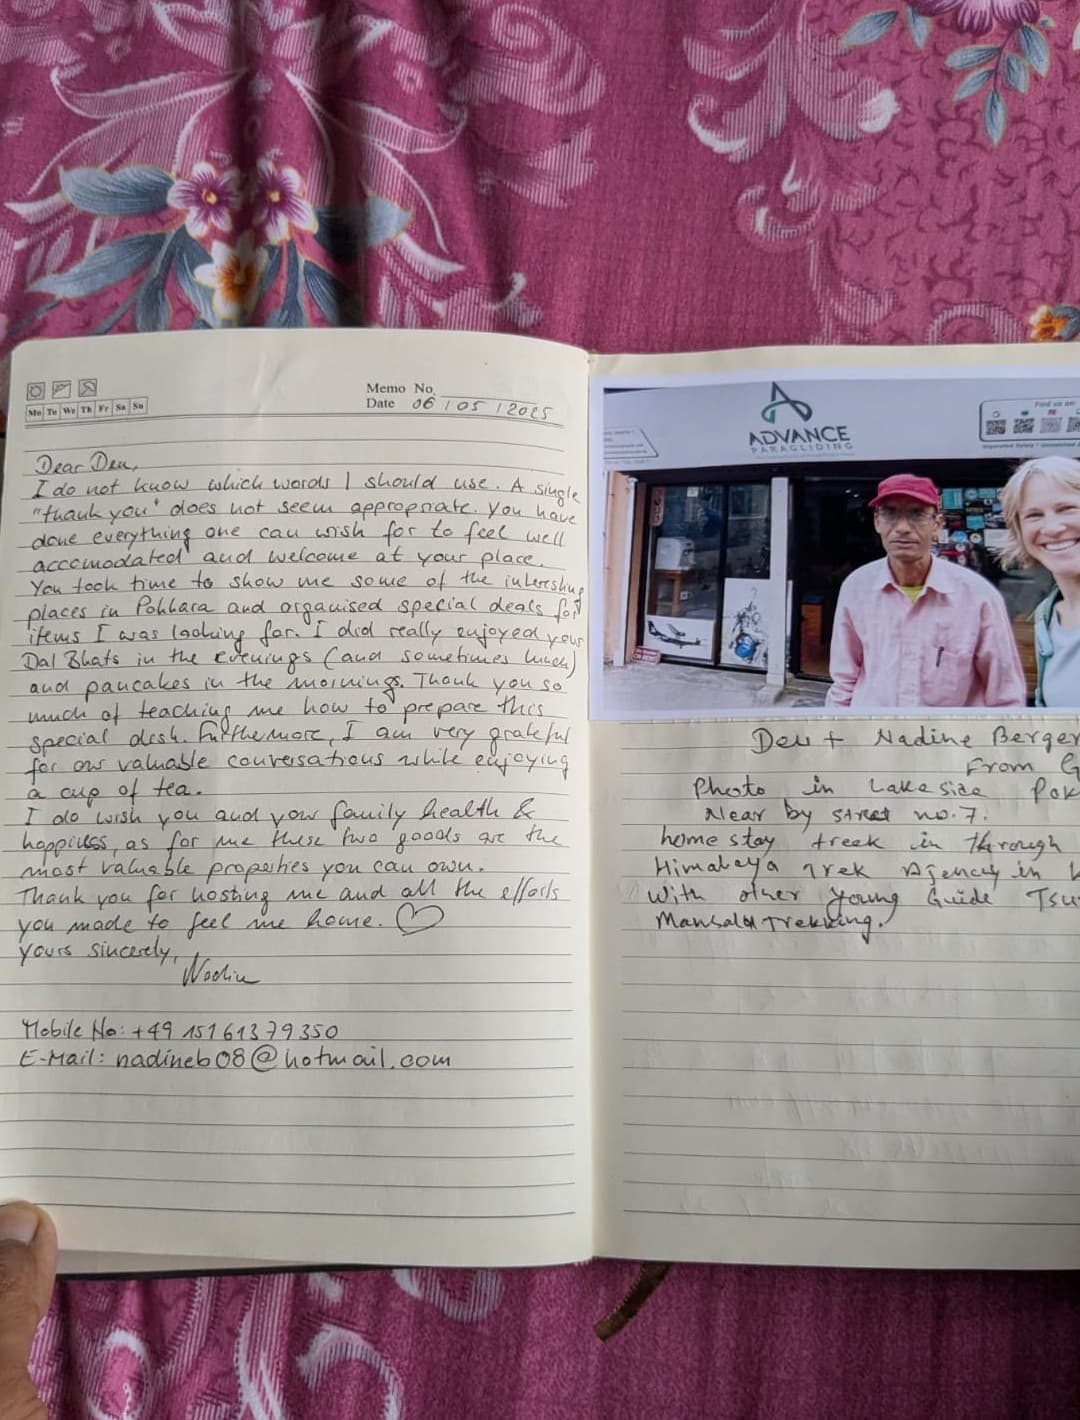 Memo No.
Mo Tu We Th Fr Sa Su
Date 06 / 05 / 2025
Dear Dev,
I do not know which words I should use. A single
"thank you" does not seem appropriate. You have
done everything one can wish for to feel well
accomodated and welcome at your place.
You took time to show me some of the interesting
places in Pokhara and organised special deals for
items I was looking for. I did really enjoyed your
Dal Bhats in the evenings (and sometimes lunch)
and pancakes in the mornings. Thank you so
much of teaching me how to prepare this
special dish. Furthermore, I am very grateful
for our valuable conversations while enjoying
a cup of tea.
I do wish you and your family health &
happiness, as for me these two goods are the
most valuable properties you can own.
Thank you for hosting me and all the efforts
you made to feel me home.
Yours sincerely,
Nadine
Mobile No: +49 15161379350
E-Mail: nadineb08@hotmail.com
ADVANCE
PARAGLIDING
Find us on
Dev + Nadine Berger
From G
Photo in Lake side Pok
Near by street no. 7.
home stay treek in through
Himalaya Trek Agency in
With other young Guide Tsu
Mansalu Trekking.